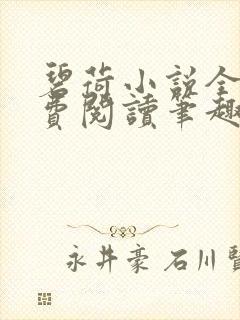 碧荷小说全
费阅讀筆趣
永井豪 石川賢